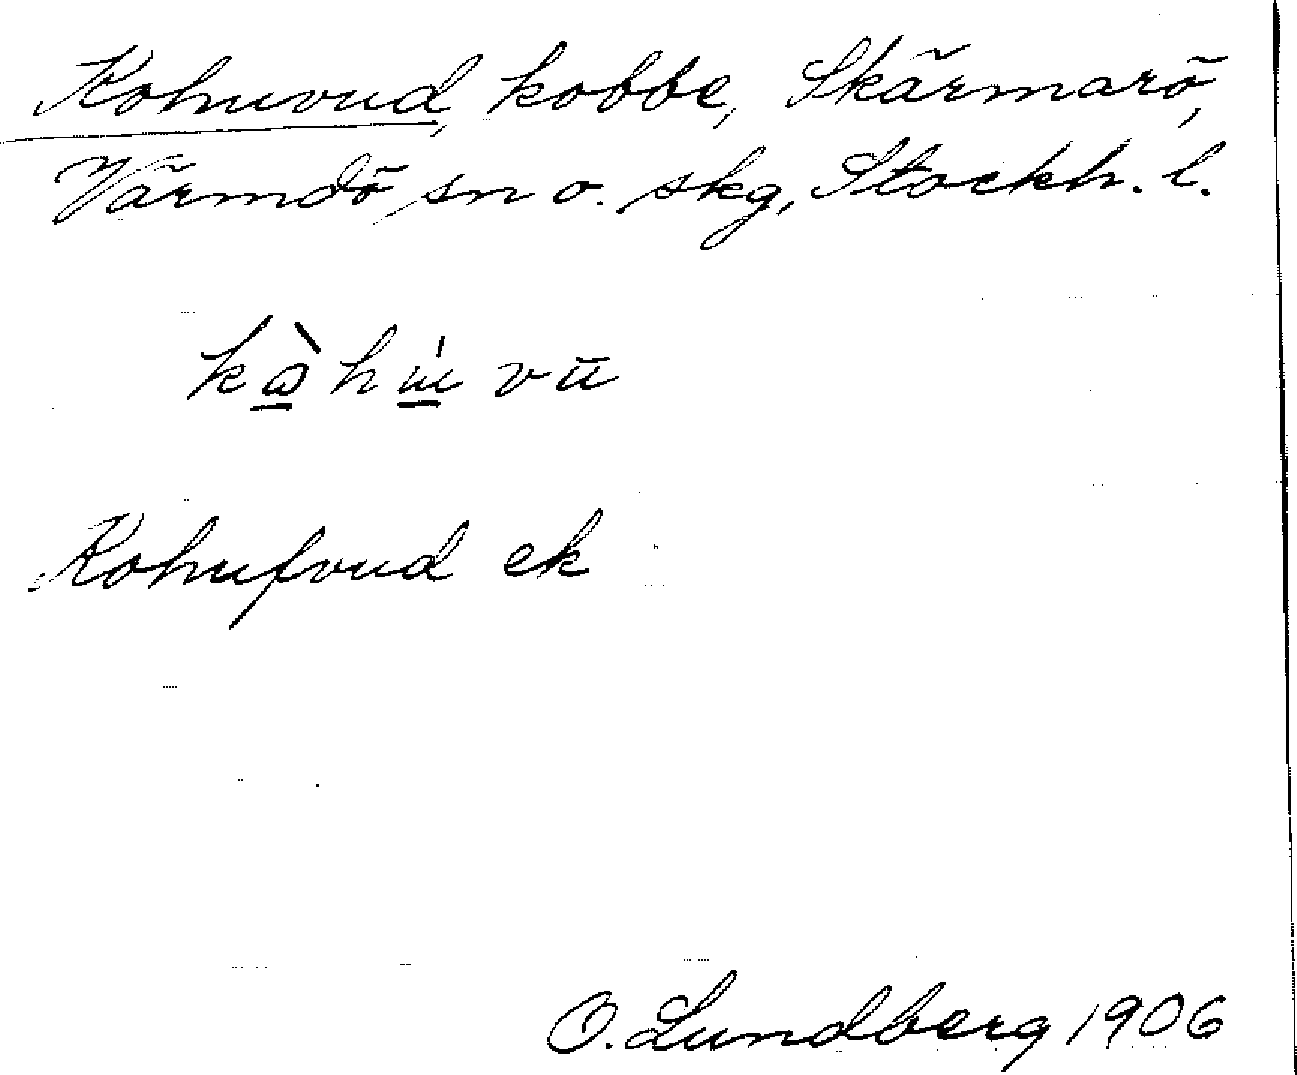 Kohuvud, kobbe, Skärmarö,
Värmdö sn o. skg, Stockh. l.
kὼhu̍vū
Kohufvud ek
O. Lundberg 1906